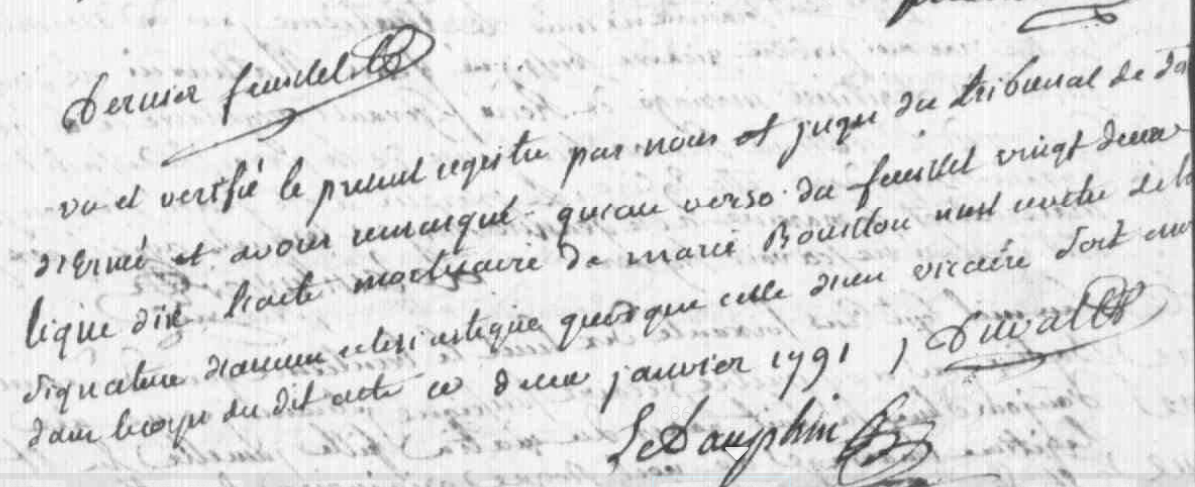 Dernier feuillet
vu et verifié le present registre par nous et juges du tribunal de
d'Ernée et avons remarqué qu'au verso du feuillet vingt deux
ligne dix l'acte mortuaire de marie Bouillon n'est revetu de la
signature d'aucun eclesiastique quoique celle d'un vicaire doit
dans le corps du dit acte ce deux janvier 1791 Duval
LeDauphin